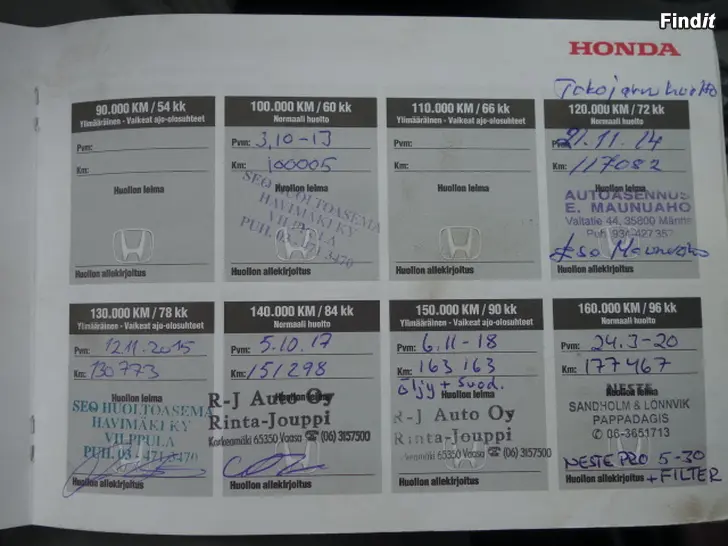 Findit
HONDA
90.000 KM / 54 kk
Ylimääräinen - Vaikeat ajo-olosuhteet
Pvm:
Km:
Huollon leima
Huollon allekirjoitus
100.000 KM / 60 kk
Normaali huolto
Pvm: 3.10-13
Km: 100005
Huollon leima
SEO HUOLTOASEMA
HAVIMÄKI KY
VILPPULA
PUH. 03-471 3470
Huollon allekirjoitus
110.000 KM / 66 kk
Ylimääräinen - Vaikeat ajo-olosuhteet
Pvm:
Km:
Huollon leima
Huollon allekirjoitus
120.000 KM / 72 kk
Normaali huolto
Pvm: 21.11.14
Km: 117082
Huollon leima
AUTOASENNUS
E. MAUNUAHO
Valtatie 44, 35800 Mänttä
Puh. 934-427357
Huollon allekirjoitus
130.000 KM / 78 kk
Ylimääräinen - Vaikeat ajo-olosuhteet
Pvm: 12.11.2015
Km: 130773
Huollon leima
SEO HUOLTOASEMA
HAVIMÄKI KY
VILPPULA
PUH. 03-471 3470
Huollon allekirjoitus
140.000 KM / 84 kk
Normaali huolto
Pvm: 5.10.17
Km: 151298
Huollon leima
R-J Auto Oy
Rinta-Jouppi
Korkeamäki 65350 Vaasa ☎ (06) 3157500
Huollon allekirjoitus
150.000 KM / 90 kk
Ylimääräinen - Vaikeat ajo-olosuhteet
Pvm: 6.11-18
Km: 163 163
Huollon leima
öljy + suod.
R-J Auto Oy
Rinta-Jouppi
Korkeamäki 65350 Vaasa ☎ (06) 3157500
Huollon allekirjoitus
160.000 KM / 96 kk
Normaali huolto
Pvm: 24.3-20
Km: 177467
Huollon leima
NESTE
SANDHOLM & LÖNNVIK
PAPPADAGIS
✆ 06-3651713
NESTE PRO 5-30
Huollon allekirjoitus + FILTER